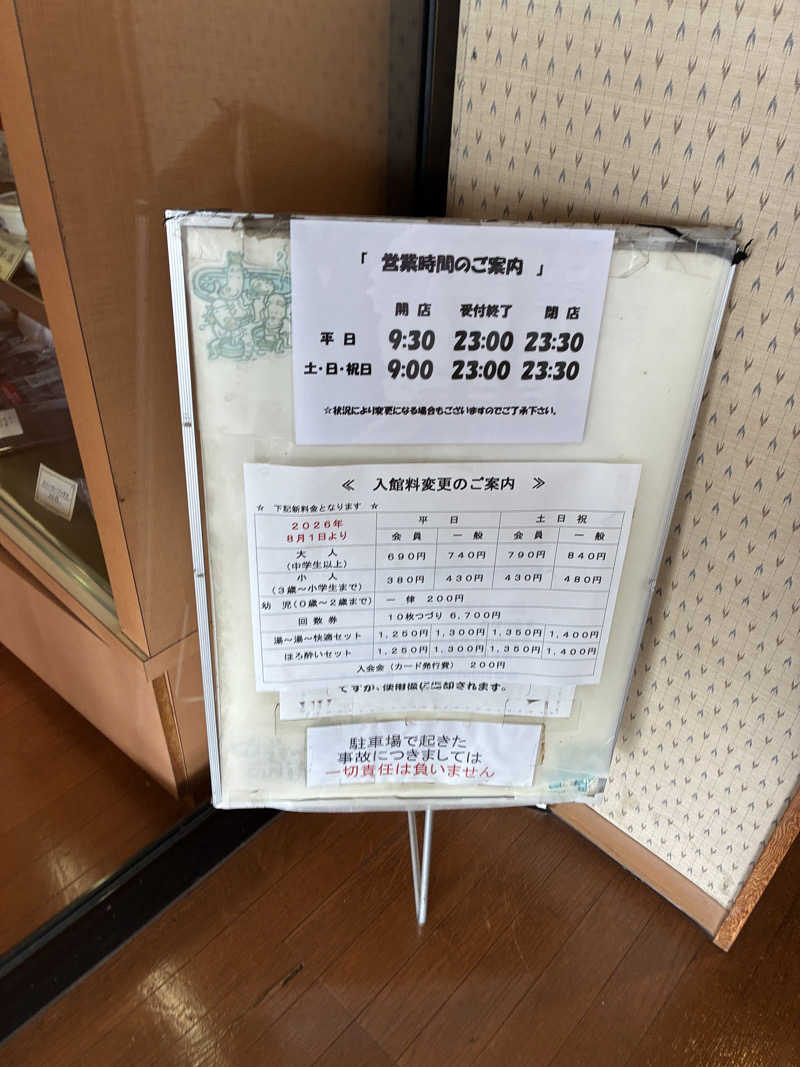 「 営業時間のご案内 」
開店 受付終了 閉店
平日 9:30 23:00 23:30
土・日・祝日 9:00 23:00 23:30
☆状況により変更になる場合もございますのでご了承下さい。
≪ 入館料変更のご案内 ≫
☆ 下記新料金となります ☆
2026年
8月1日より
平日 土日祝
会員 一般 会員 一般
大人
(中学生以上)
690円 740円 790円 840円
小人
(3歳～小学生まで)
380円 430円 430円 480円
幼児(0歳～2歳まで) 一律 200円
回数券 10枚つづり 6,700円
湯～湯～快適セット 1,250円 1,300円 1,350円 1,400円
ほろ酔いセット 1,250円 1,300円 1,350円 1,400円
入会金(カード発行費) 200円
ですが、使用後に
却されます。
駐車場で起きた
事故につきましては
一切責任は負いません